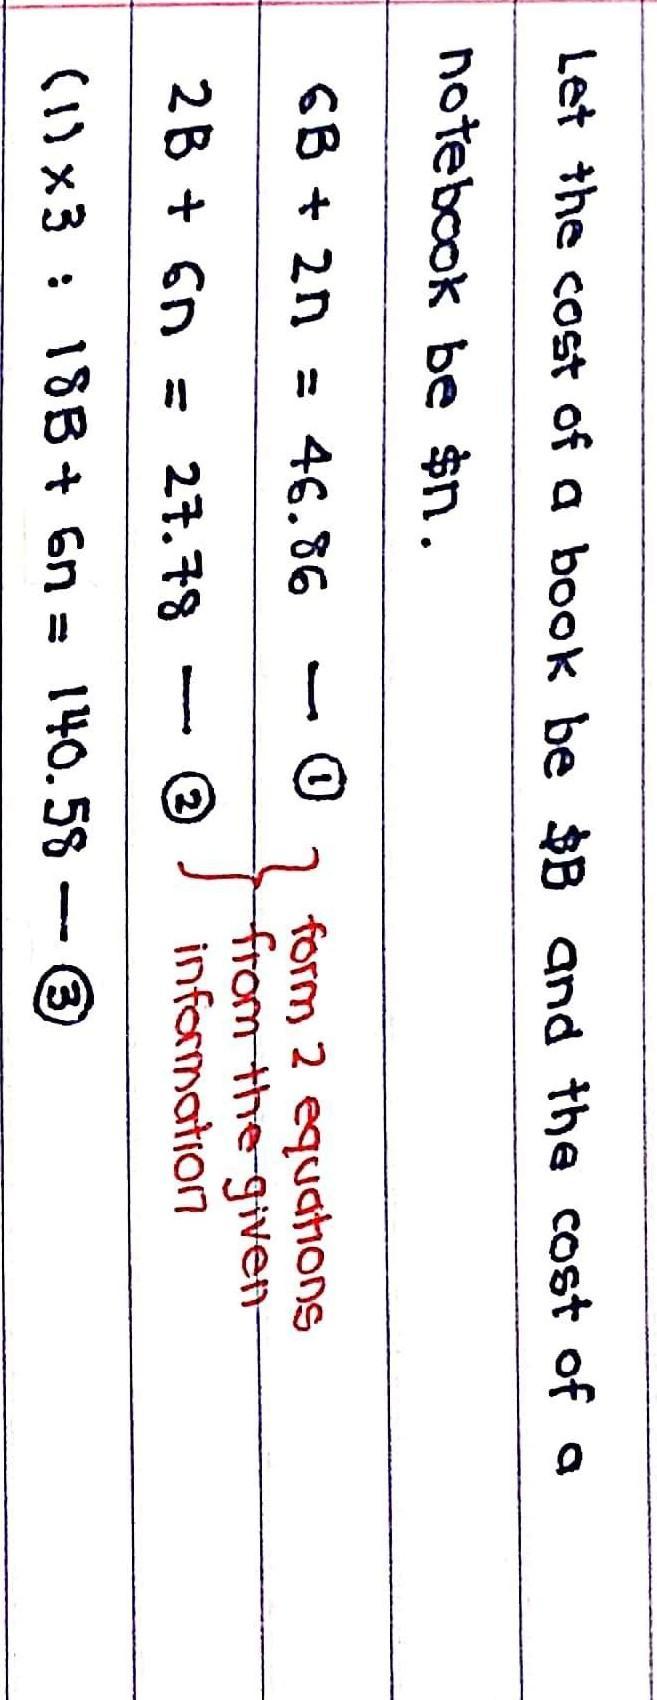 Let the cost of a book be $B and the cost of a
notebook be $n.
6B + 2n = 46.86 — ①
2B + 6n = 27.78 — ②
form 2 equations
from the given
information
(1) x 3 : 18B + 6n = 140.58 — ③